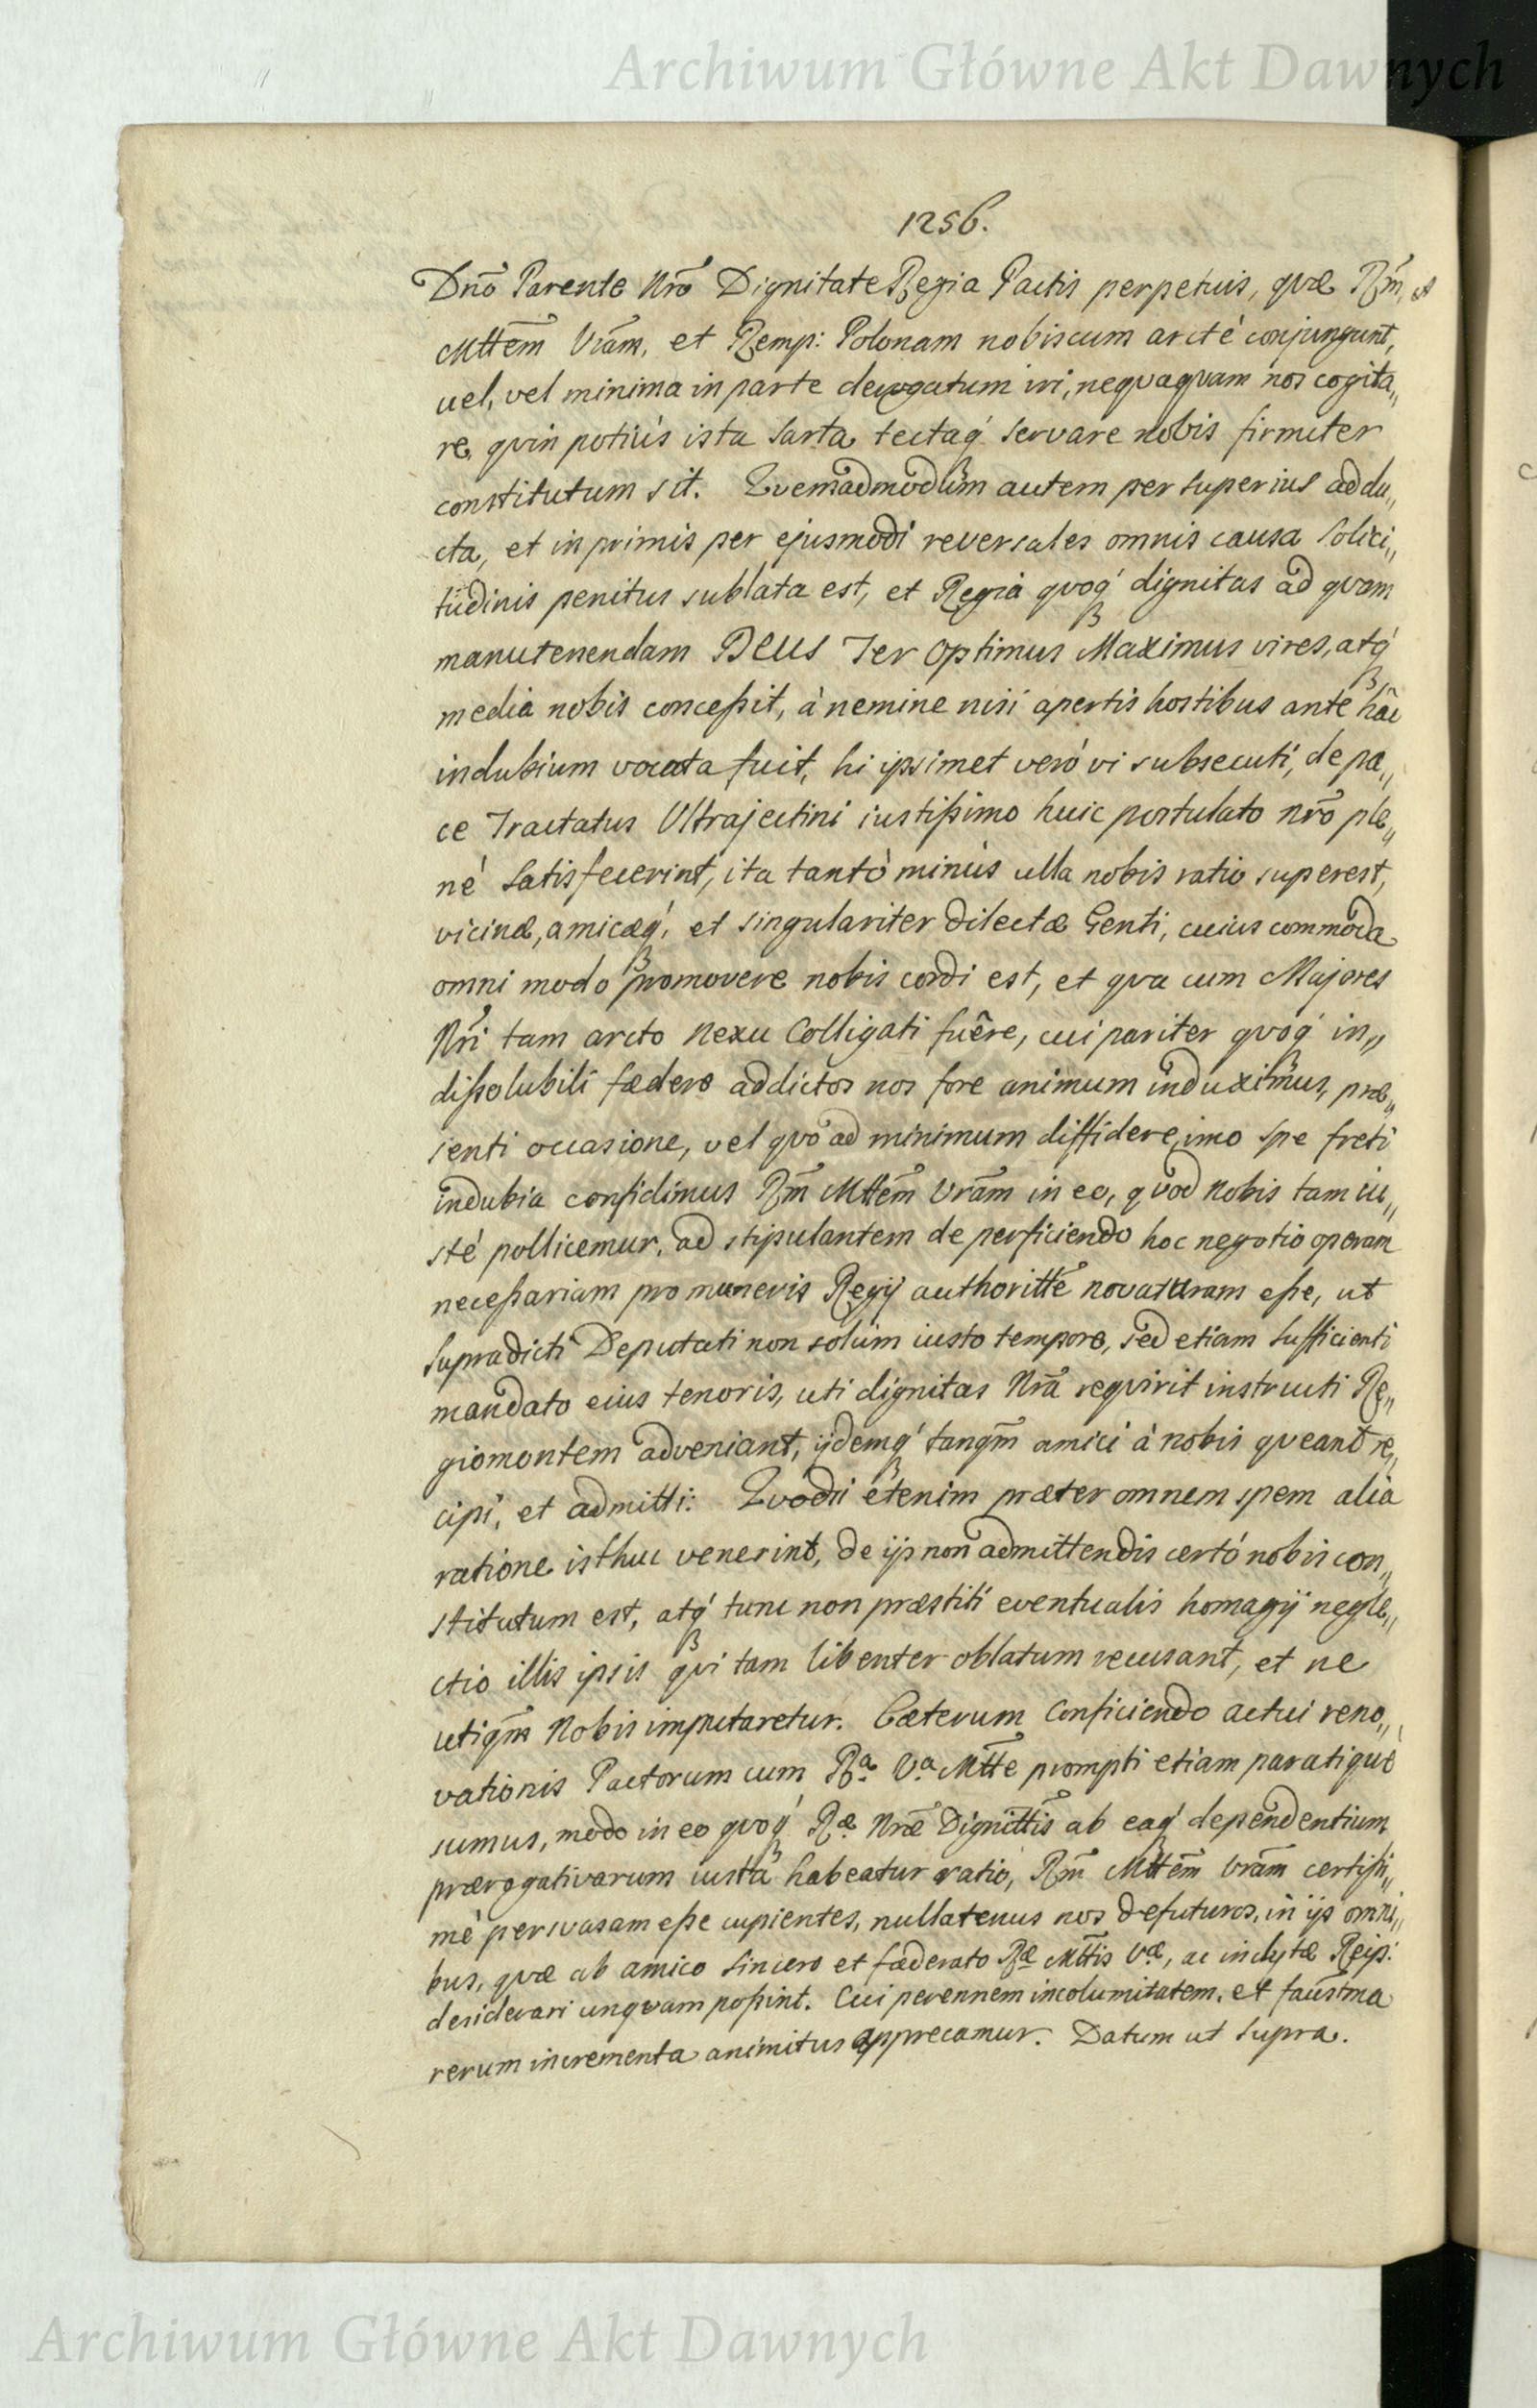 Archiwum Główne Akt Dawnych
1256.
Dnõ Parente Nrõ Dignitate Regia Pactis perpetuis, quæ Rm̃,
Mttem̃ Vrãm, et Remp: Polonam nobiscum arctè conjungunt,
uel, vel minima in parte derogatum iri, nequaquam nos cogita„
re, quin potiùs ista sarta tectaq́ servare nobis firmiter
constitutum sit. Quemadmodum autem per superius addu„
cta, et in primis per ejusmodi reversales omnis causa solici„
tudinis penitus sublata est, et Regia quoq́ dignitas ad quam
manutenendam DEUS Ter Optimus Maximus vires, atq́
media nobis conceßit, à nemine nisi apertis hostibus ante hãc
indubium vocata fuit, hi ipsimet verò vi subsecuti, de pa„
ce Tractatus Ultrajectini iustißimo huic postulato nrõ ple„
nè satisfecerint, ita tantò minùs ulla nobis ratio superest,
vicinæ, amicæq́, et singulariter dilectæ Genti, cuius commoda
omni modo promovere nobis cordi est, et qua cum Majores
Nrĩ tam arcto nexu Colligati fuêre, cui pariter quoq́ in„
dißolubili fædere addictos nos fore animum induximus, præ„
senti occasione, vel quo ad minimum diffidere, imo spe freti
indubia confidimus Rm̃ Mttem̃ Vrãm in eo, quod nobis tam iu„
stè pollicemur, ad stipulantem de perficiendo hoc negotio operam
neceßariam pro muneris Regij authorittẽ novaturam eße, ut
supradicti Deputati non solùm iusto tempore, sed etiam sufficienti
mandato eius tenoris, uti dignitas Nrã requirit instructi Re„
giomontem adveniant, ijdemq́ tanqm̃ amici à nobis queant re„
cipi, et admitti: Quodsi etenim præter omnem spem alia
ratione isthuc venerint, de ijs non admittendis certò nobis con„
stitutum est, atq́ tunc non præstiti eventualis homagij negle„
ctio illis ipsis qui tam libenter oblatum recusant, et ne
utiqm̃ Nobis imputaretur. Cæterum Conficiendo actui reno„
vationis Pactorum cum Rª. Vª. Mtte prompti etiam paratique
sumus, modo in eo quoq́ Ræ. Nræ̃ Dignittis̃ ab eaq́ dependentium
prærogativarum iusta habeatur ratio, Rm̃ Mttem̃ Vrãm certißi„
mè persuasam eße cupientes, nullatenus nos defuturos, in ijs omni„
bus, quæ ab amico sincero et fæderato Ræ Mttis̃ Væ, ac inclytæ Reip:
desiderari unquam poßint. Cui perennem incolumitatem, et
rerum incrementa animitus apprecamur. Datum ut supra.
Archiwum Główne Akt Dawnych